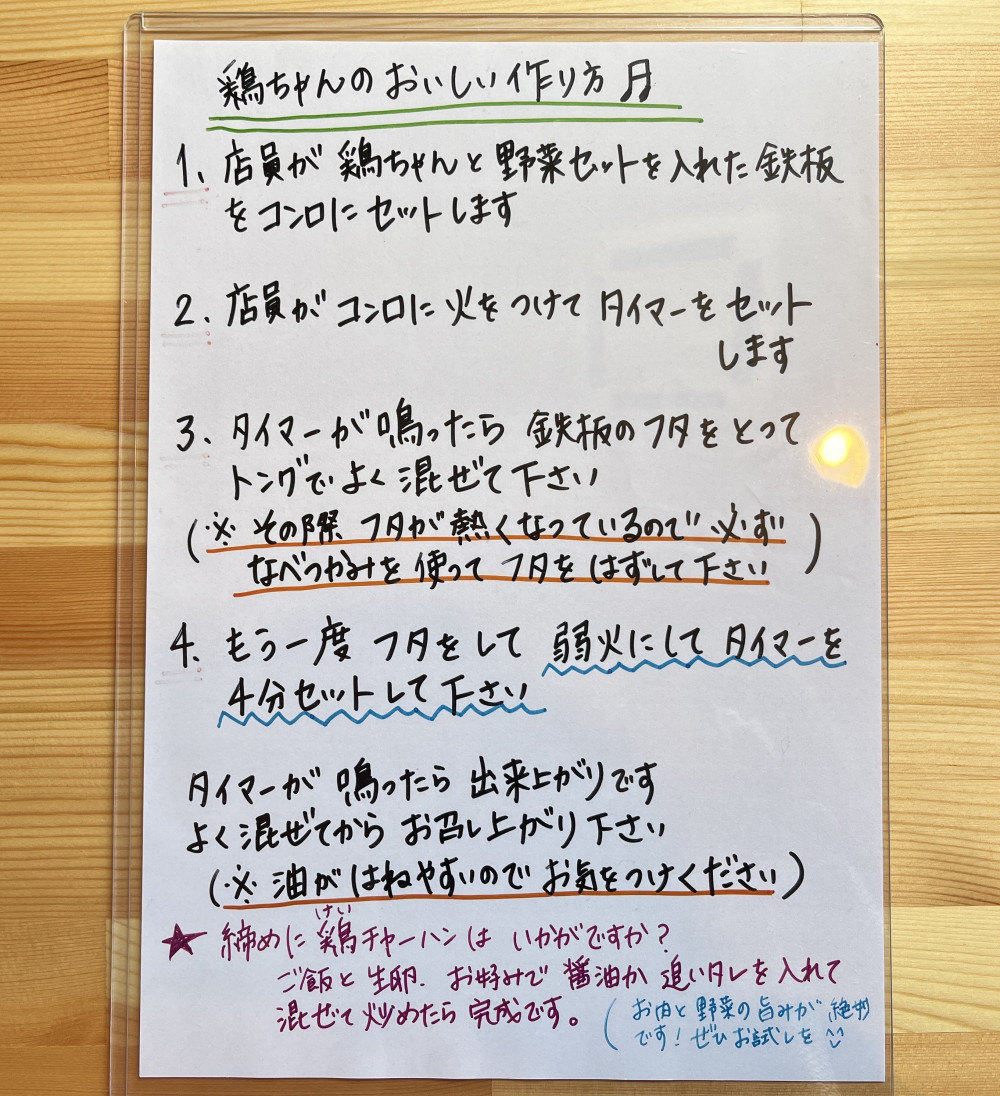 鶏ちゃんのおいしい作り方♫
1. 店員が 鶏ちゃんと野菜セットを入れた鉄板
をコンロにセットします
2. 店員が コンロに火をつけて タイマーをセット
します
3. タイマーが鳴ったら 鉄板のフタをとって
トングでよく混ぜて下さい
(※ その際 フタが熱くなっているので 必ず
なべつかみを使って フタをはずして下さい)
4. もう一度 フタをして 弱火にして タイマーを
4分セットして下さい
タイマーが 鳴ったら 出来上がりです
よく混ぜてから お召し上がり下さい
(※ 油がはねやすいので お気をつけください)
けい
★ 締めに 鶏チャーハンは いかがですか?
ご飯と生卵、お好みで 醤油か 追いタレを入れて
混ぜて 炒めたら 完成です。
(お肉と野菜の旨みが 絶妙
です!ぜひお試しを